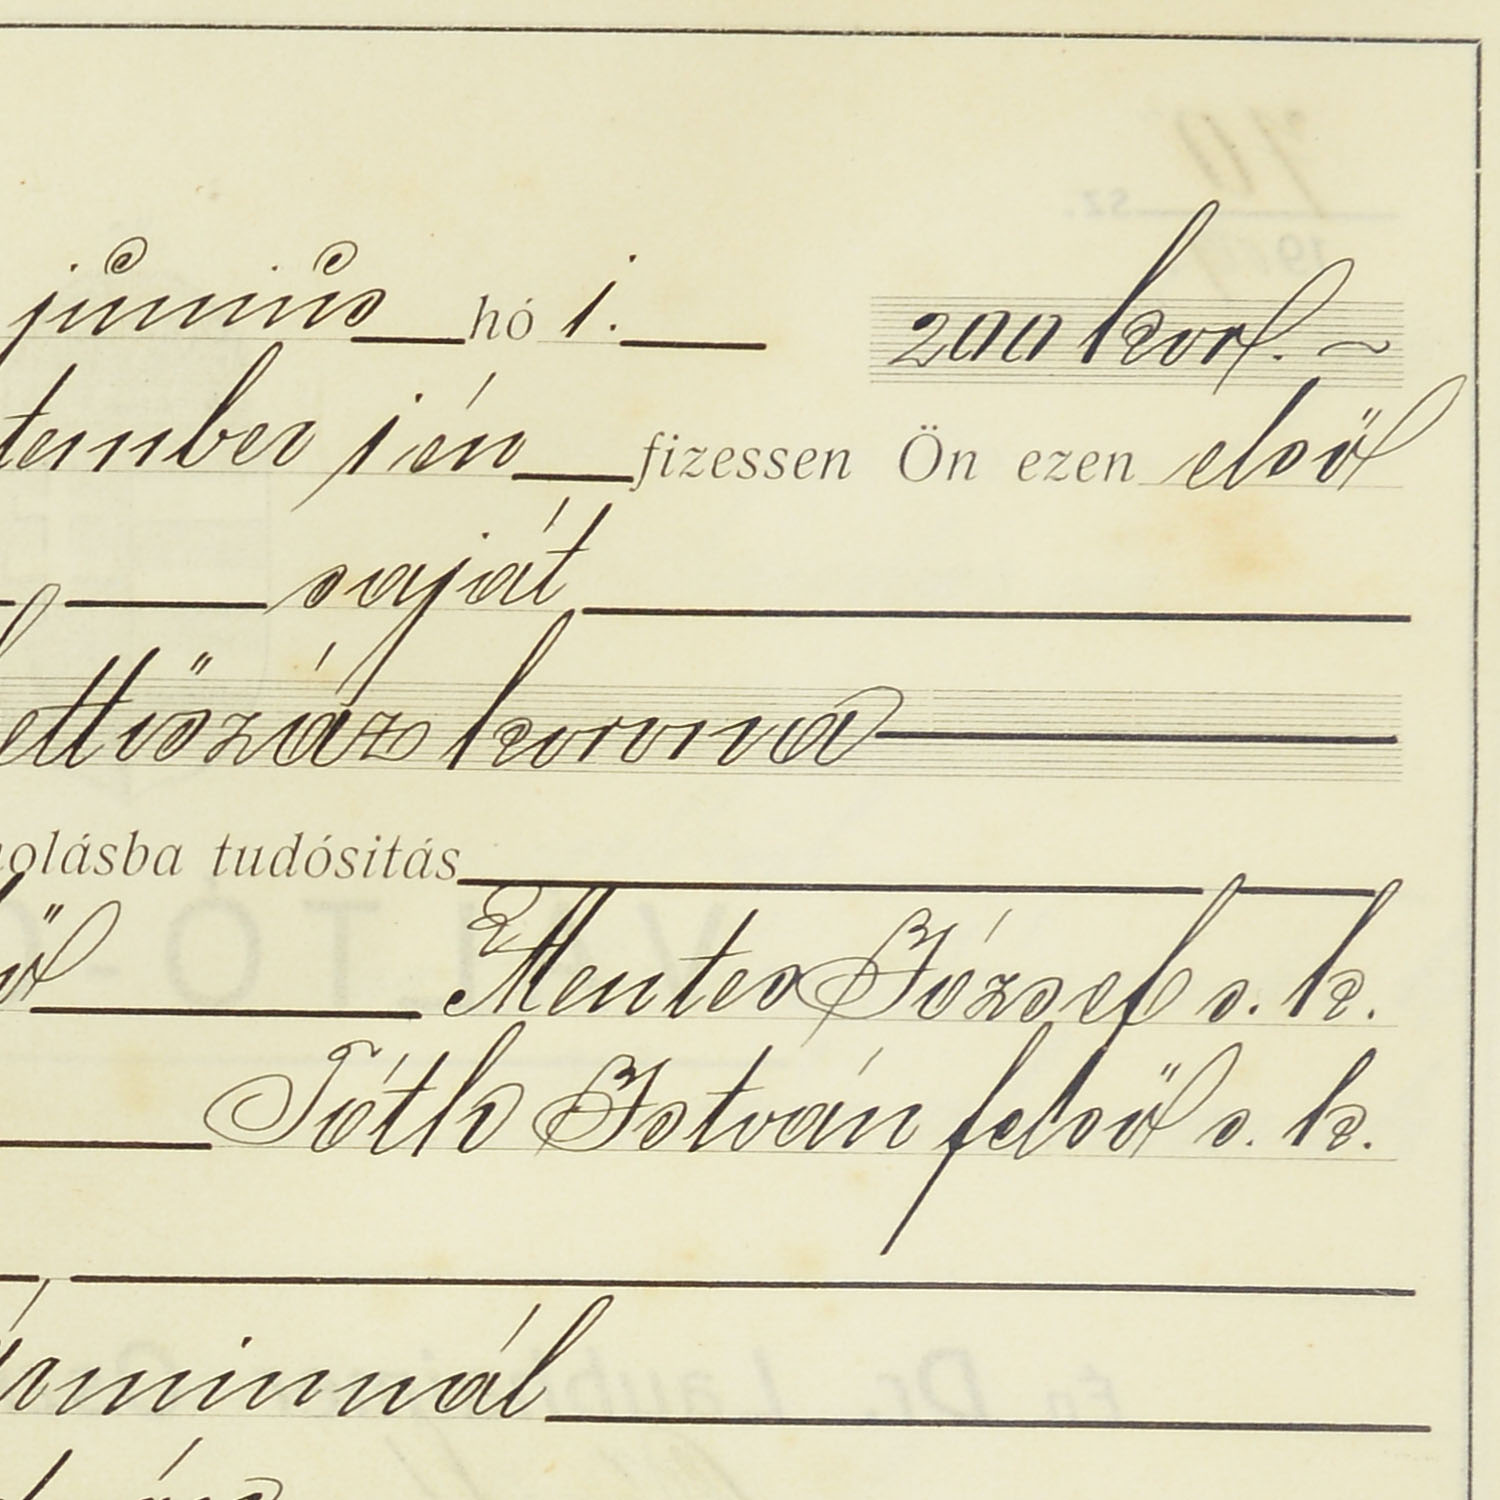 június hó 1. 200 kor. ~
tember 1 én fizessen Ön ezen első
saját
ettőszáz korona
olásba tudósitás
Mentes József s. k.
Tóth István felső s. k.
minnál